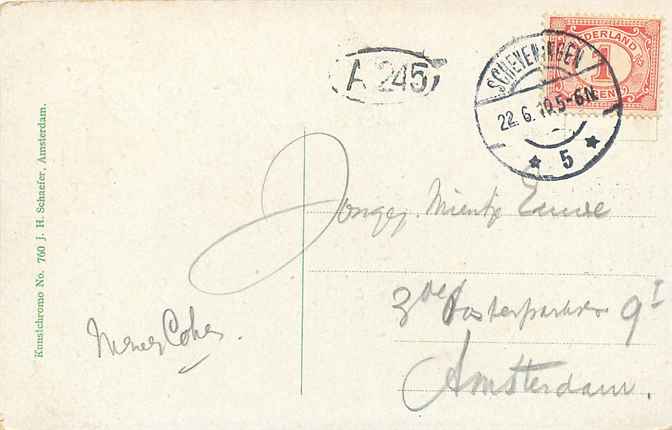 NEDERLAND
1
CENT
SCHEVENINGEN
22.6.10.5-6N.
* 5 *
A 245
Kunstchromo No. 760 J. H. Schaefer, Amsterdam.
Jongej. Mientje
3de Oosterparkstr 9I
Amsterdam.
Cohen